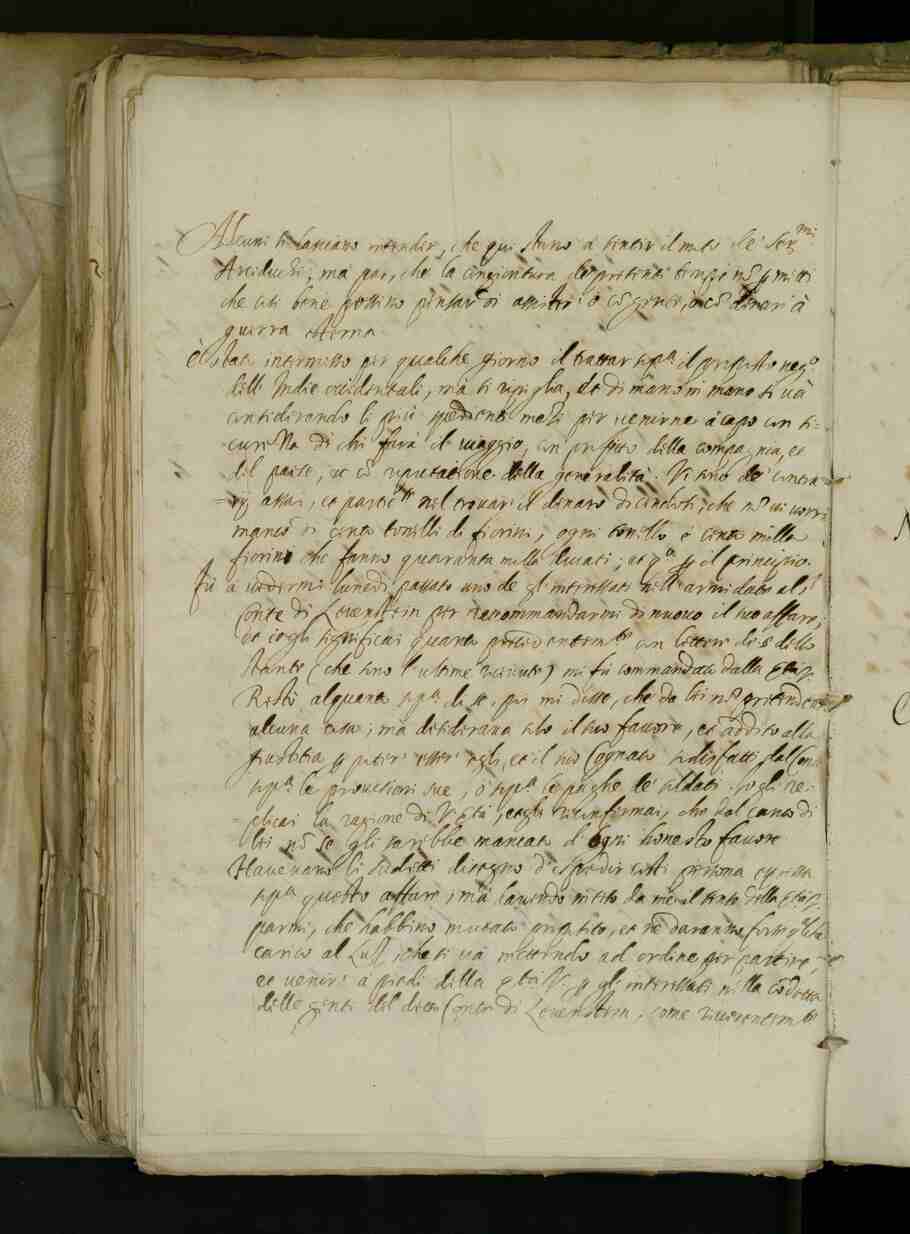 Alcuni si lasciano intender, che qui stano a sentir il moto de Ser.mi
Arciduchi, ma par, che la congiontura de presenti tempi nõ ꝑmetti
che cosi bene possino pensar di assister ò cõ gente, ò cõ denari à
guerra esterna
È stato intermesso per qualche giorno il trattar sop.a il proposto neg.o
delle Indie occidentali, mà si ripiglia, et di mano in mano si và
considerando li più espedienti modi per venirne à capo con si-
curezza di chi farà il viaggio, con profitto della compagnia, et
del paese, et cõ riputatione della generalità. Vi sono de contra-
-rij assai, et partic.te nel trovar il denaro dicendosi, che nõ vi vorrà
manco di cento tonelli di fiorini, ogni tonello è cento mille
fiorini che fanno quaranta mille ducati; et q.o ꝑ il principio.
Fù a vedermi lunedi passato uno de gl'interessati nell'armi dato al S.r
Conte di Levenstein per raccommandarmi di nuovo il suo affare;
et io gli significai quanto
stante (che sono l'ultime ricevute) mi fù commandato dalla
Restò alquanto sop.a di se, poi mi disse, che da lei nõ pretendeva
alcuna cosa; mà desiderava solo il suo favore, et addito alla
giustitia ꝑ poter esser egli, et il suo Cognato sodisfatti dal Conte
sop.a le provisioni sue, ò sop.a le paghe de soldati. Io gli re-
plicai la ragione di V. Ser.tà, et gli riconfermai, che dal canto di
lei nõ se gli sarebbe mancato d'ogni honesto favore
Havevano li sudetti disegno d'espedir costì persona espressa
sop.a questo affare; mà havendo inteso da me il senso della
parmi, che habbino mutato proposito, et ne daranno forse q.sto
carico al che si và mettendo ad ordine per partire,
et venir à piedi della ꝑ gl'interessati nella cõdotta
delle genti del detto Conte di Levenstein, come riverentem.te